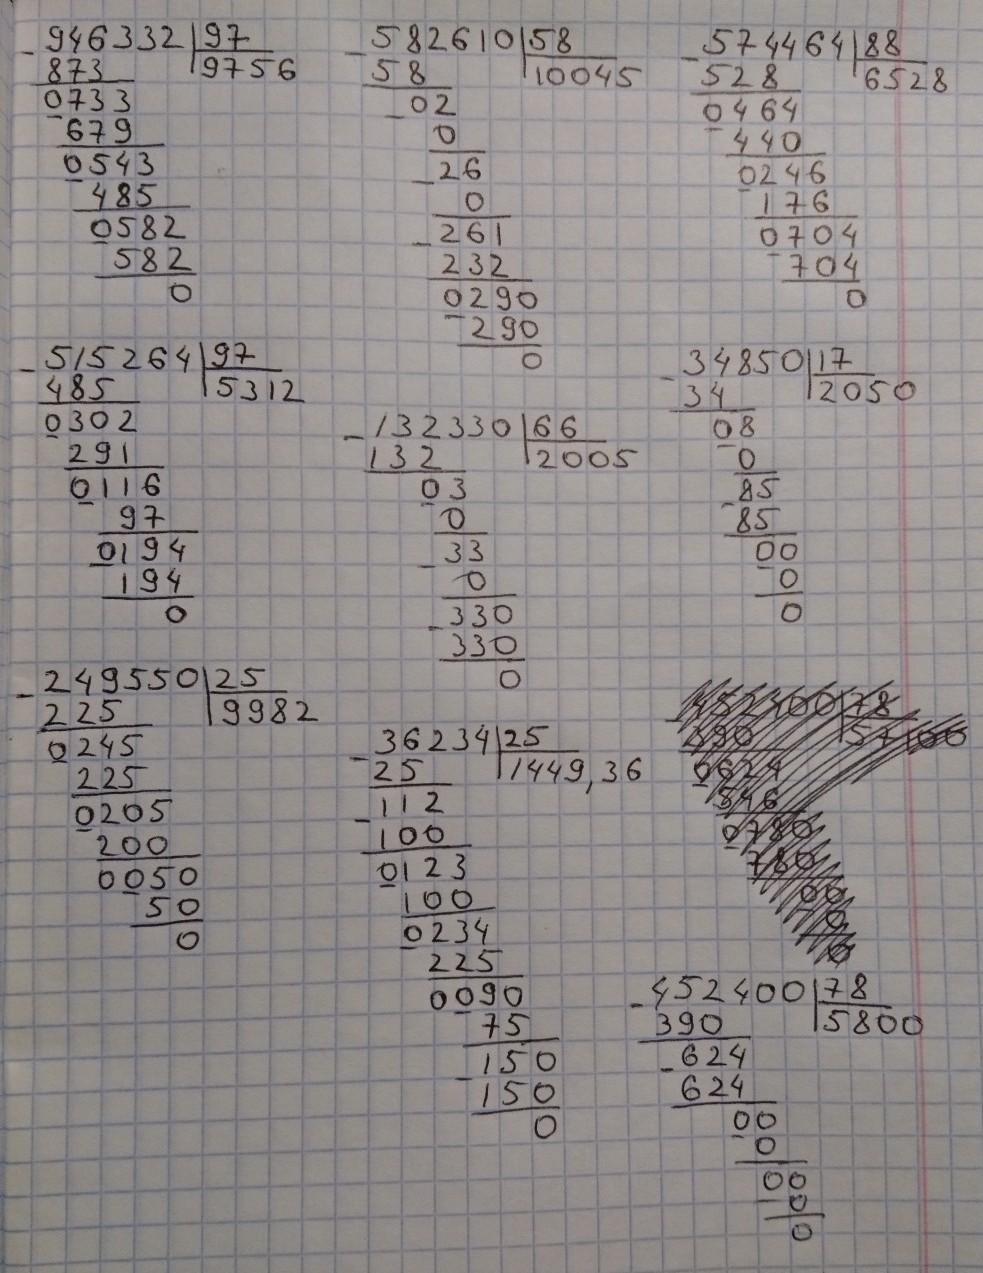 946332 97
873 9756
0733
679
0543
485
0582
582
0
582610 58
58 10045
02
0
26
0
261
232
0290
290
0
574464 88
528 6528
0464
440
0246
176
0704
704
0
515264 97
485 5312
0302
291
0116
97
0194
194
0
132330 66
132 2005
03
0
33
0
330
330
0
34850 17
34 2050
08
0
85
85
00
0
0
249550 25
225 9982
0245
225
0205
200
0050
50
0
36234 25
25 1449,36
112
100
0123
100
0234
225
0090
75
150
150
0
452400 78
390
0624
546
0780
780
00
0
0
452400 78
390 5800
624
624
00
0
00
0
0